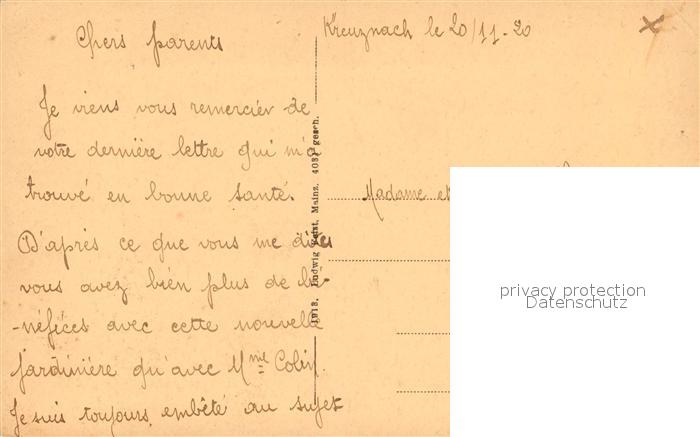 Chers parents
Je viens vous remercier de
votre dernière lettre qui m'a
trouvé en bonne santé.
D'après ce que vous me dites
vous avez bien plus de bé-
-néfices avec cette nouvelle
jardinière qu'avec Mme Colin.
Je suis toujours embêté au sujet
1913. Ludwig Feist, Mainz. 403 gesch.
Kreuznach le 20/11-20
Madame et
privacy protection
Datenschutz